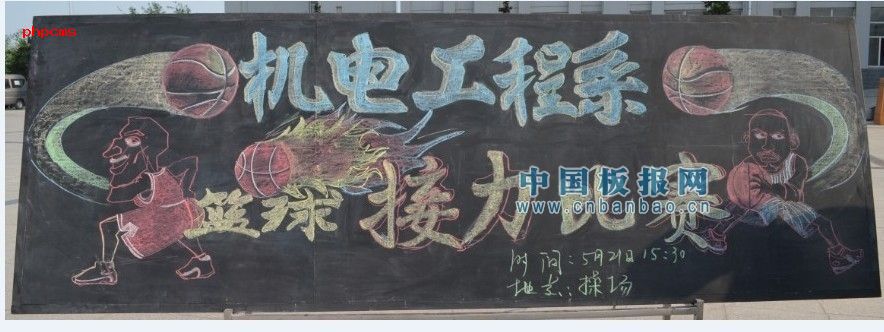 phpcms
机电工程系
篮球接力比赛
中国板报网
www.cnbanbao.cn
时间:5月21日 15:30
地点:操场